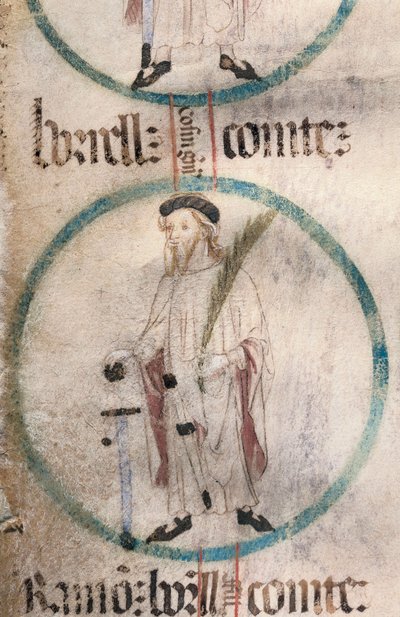 borrell: comte:
Ramō: borll comte: